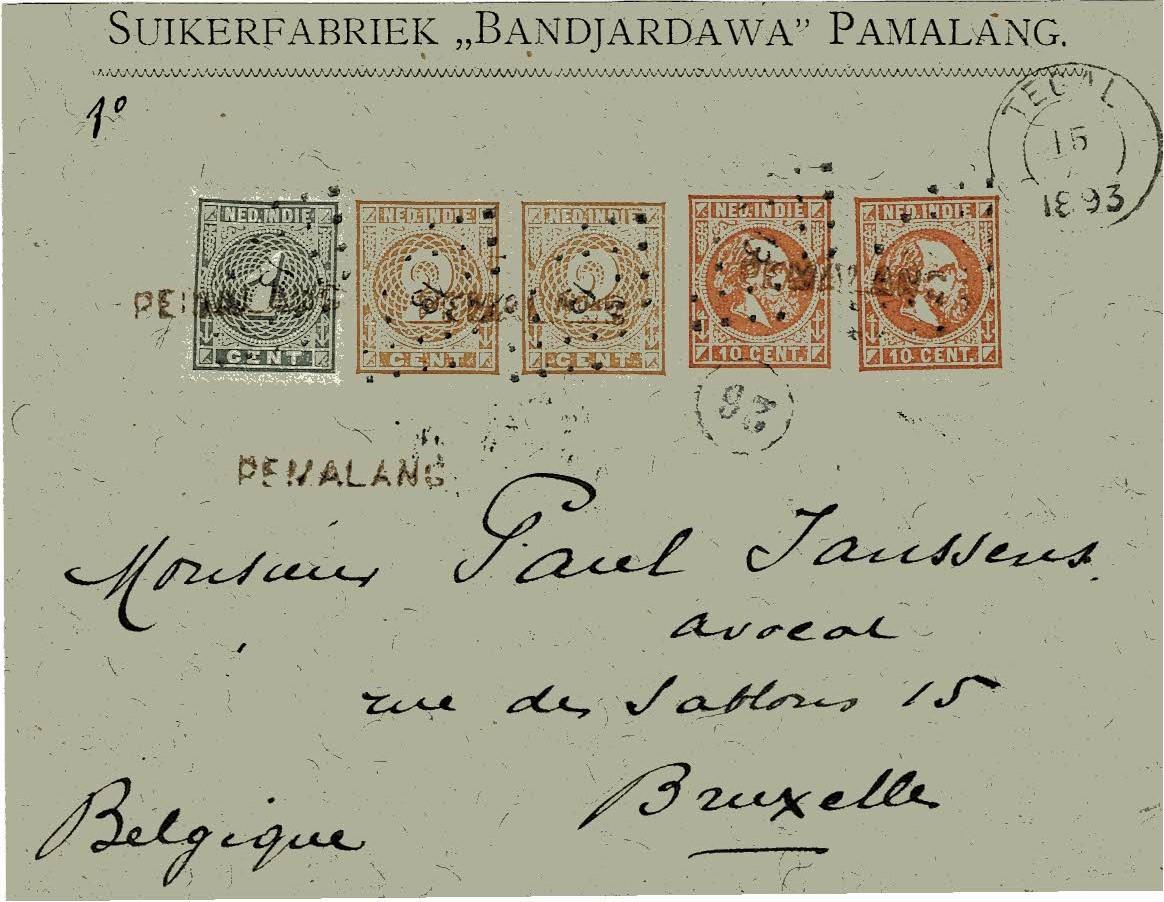 SUIKERFABRIEK „BANDJARDAWA” PAMALANG.
1º
TEGAL
15
1893
NED. INDIE
1
CENT
NED. INDIE
2
CENT.
NED. INDIE
2
CENT.
NED. INDIE
10 CENT.
NED. INDIE
10 CENT.
PEMALANG
PEMALANG
PEMALANG
PEMALANG
Monsieur Paul Janssens.
avocat
rue des Sablons 15
Bruxelles
Belgique